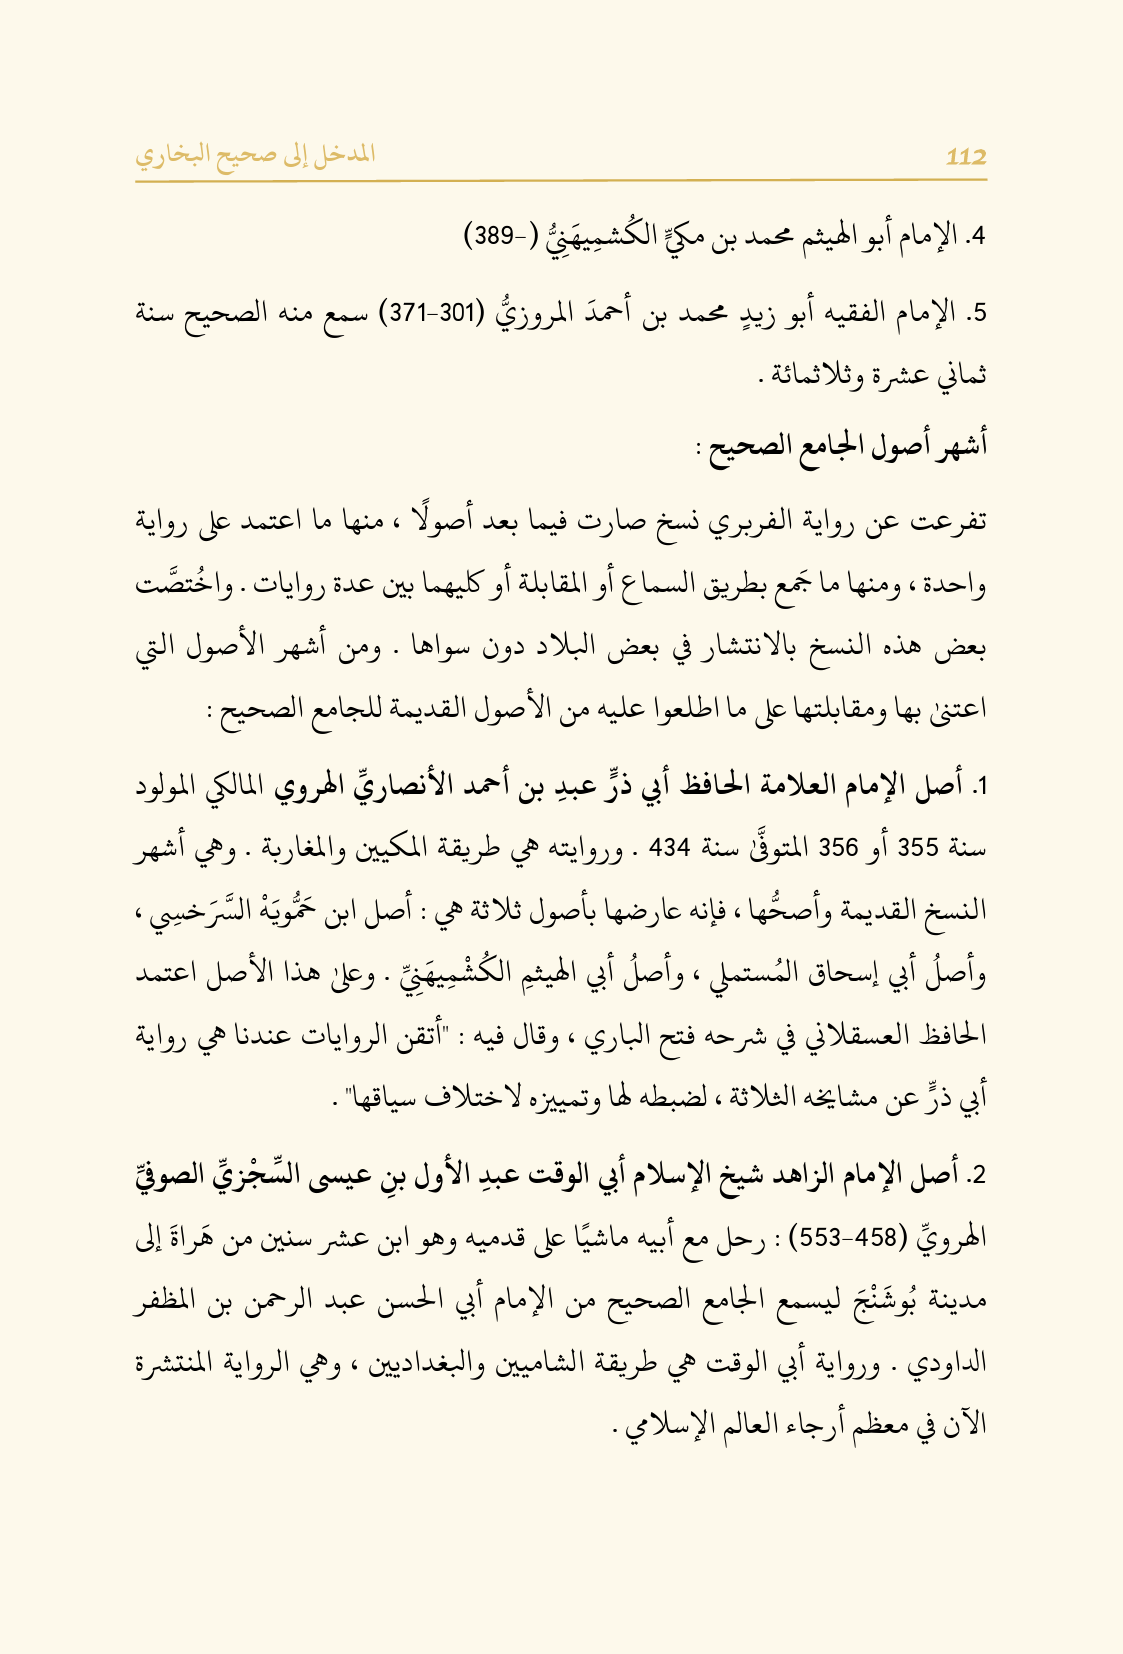 112 المدخل إلى صحيح البخاري
4. الإمام أبو الهيثم محمد بن مكيٍّ الكُشمِيهَنِيُّ (-389)
5. الإمام الفقيه أبو زيدٍ محمد بن أحمدَ المروزيُّ (301-371) سمع منه الصحيح سنة
ثماني عشرة وثلاثمائة .
أشهر أصول الجامع الصحيح :
تفرعت عن رواية الفربري نسخ صارت فيما بعد أصولًا ، منها ما اعتمد على رواية
واحدة ، ومنها ما جَمع بطريق السماع أو المقابلة أو كليهما بين عدة روايات . واختُصَّت
بعض هذه النسخ بالانتشار في بعض البلاد دون سواها . ومن أشهر الأصول التي
اعتنىٰ بها ومقابلتها على ما اطلعوا عليه من الأصول القديمة للجامع الصحيح :
1. أصل الإمام العلامة الحافظ أبي ذرٍّ عبدِ بن أحمد الأنصاريِّ الهروي المالكي المولود
سنة 355 أو 356 المتوفَّىٰ سنة 434 . وروايته هي طريقة المكيين والمغاربة . وهي أشهر
النسخ القديمة وأصحُّها ، فإنه عارضها بأصول ثلاثة هي : أصل ابن حَمُّويَهْ السَّرَخسِي ،
وأصلُ أبي إسحاق المُستملي ، وأصلُ أبي الهيثمِ الكُشْمِيهَنِيِّ . وعلىٰ هذا الأصل اعتمد
الحافظ العسقلاني في شرحه فتح الباري ، وقال فيه : "أتقن الروايات عندنا هي رواية
أبي ذرٍّ عن مشايخه الثلاثة ، لضبطه لها وتمييزه لاختلاف سياقها" .
2. أصل الإمام الزاهد شيخ الإسلام أبي الوقت عبدِ الأول بنِ عيسى السِّجْزيِّ الصوفيِّ
الهرويِّ (458-553) : رحل مع أبيه ماشيًا على قدميه وهو ابن عشر سنين من هَراةَ إلى
مدينة بُوشَنْجَ ليسمع الجامع الصحيح من الإمام أبي الحسن عبد الرحمن بن المظفر
الداودي . ورواية أبي الوقت هي طريقة الشاميين والبغداديين ، وهي الرواية المنتشرة
الآن في معظم أرجاء العالم الإسلامي .